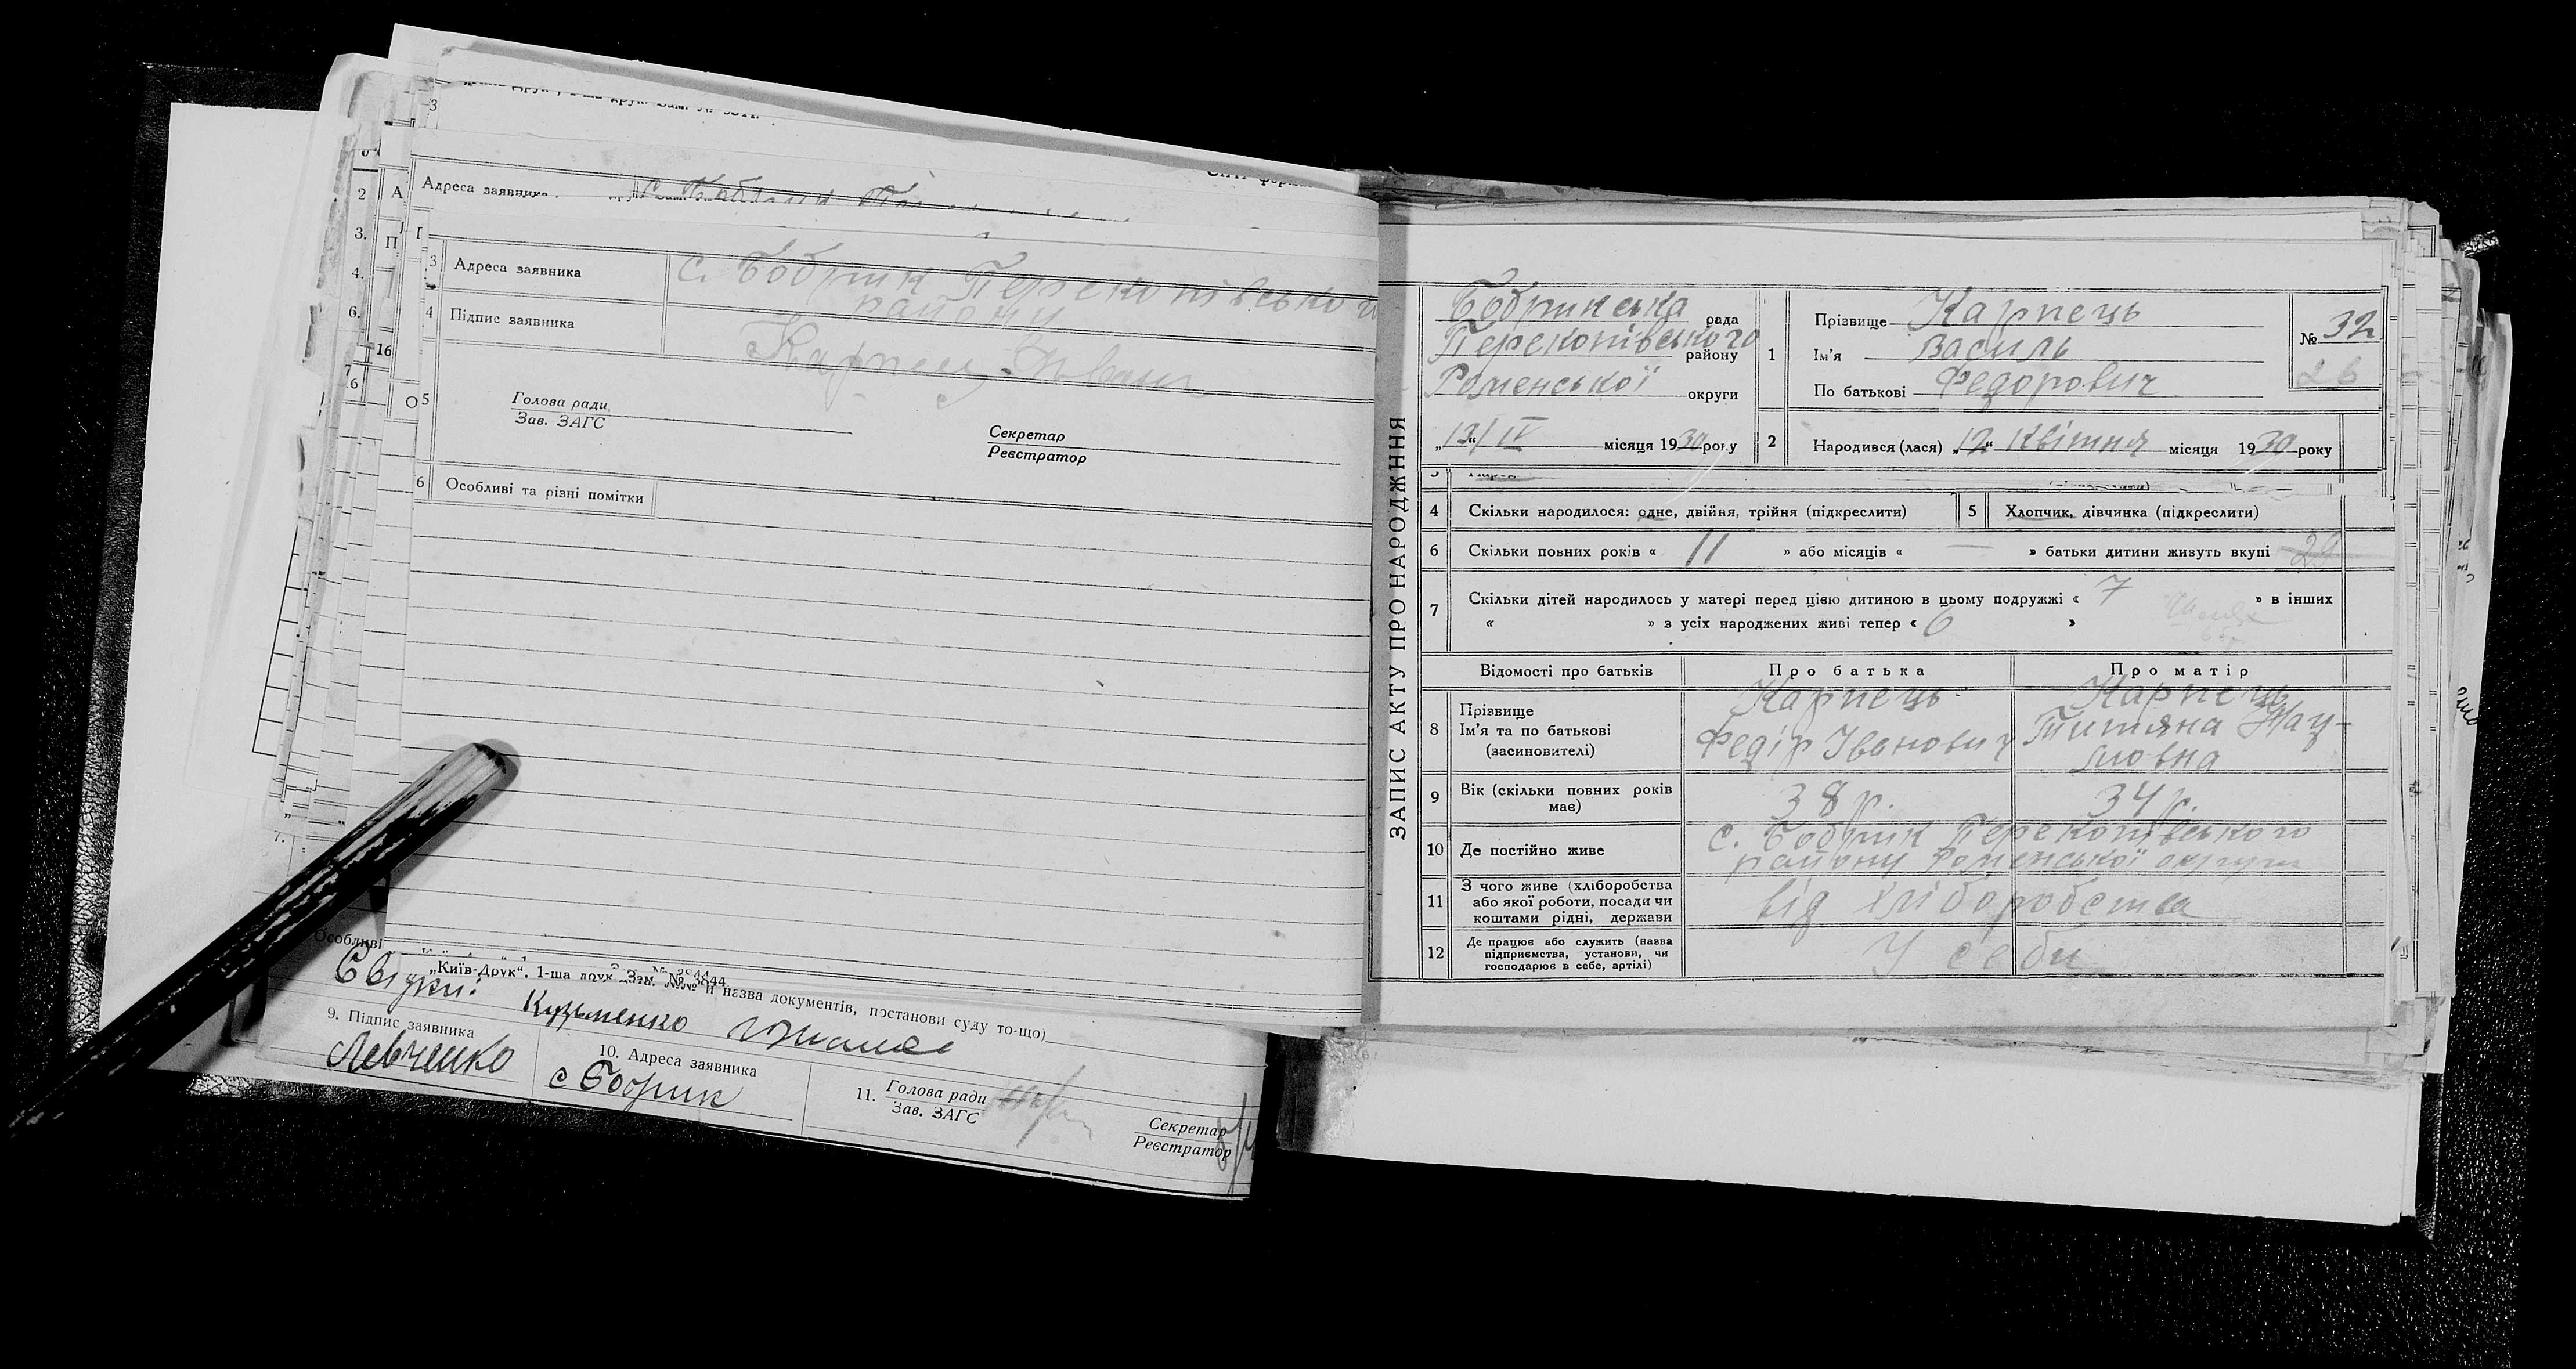 Адреса заявника
3 Адреса заявника с. Бобрик Перекопівського
району
4 Підпис заявника Карпець Іван
5 Голова ради
Зав. ЗАГС
Секретар
Реєстратор
6 Особливі та різні помітки
„Київ-Друк“. 1-ша друк. Зам. № 3844.
Особливі
й назва документів, постанови суду то-що)
Свідки: Кузьменко
9. Підпис заявника
Левченко
10. Адреса заявника
с Бобрик
11. Голова ради
Зав. ЗАГС
Секретар
Реєстратор
ЗАПИС АКТУ ПРО НАРОДЖННЯ
Бобринська рада
Перекопівського району
Роменської округи
„13“/IV місяця 1930 року
1 Прізвище Карпець
Ім'я Василь
По батькові Федорович
№ 32
26
2 Народився (лася) „12“ Квітня місяця 1930 року
4 Скільки народилося: одне, двійня, трійня (підкреслити)
5 Хлопчик, дівчинка (підкреслити)
6 Скільки повних років « 11 » або місяців « — » батьки дитини живуть вкупі 29
7 Скільки дітей народилось у матері перед цією дитиною в цьому подружжі « 7 » в інших
« » з усіх народжених живі тепер « 6 »
Відомості про батьків Про батька Про матір
8 Прізвище
Ім'я та по батькові
(засиновителі)
Карпець
Федір Іванович
Карпець
Титяна Нау-
мовна
9 Вік (скільки повних років
має)
38 р. 34 р.
10 Де постійно живе с. Бобрик Перекопівського
району Роменської округи
11 З чого живе (хліборобства
або якої роботи, посади чи
коштами рідні, держави
від хліборобства
12 Де працює або служить (назва
підприємства, установи, чи
господарює в себе, артілі)
У себи